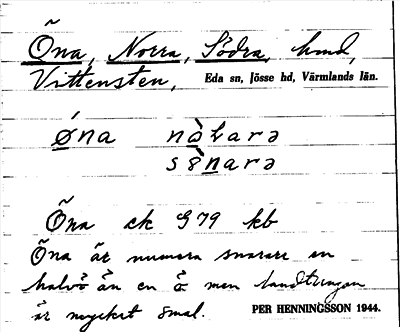 Öna, Norra, Södra, hmd,
Vittensten, Eda sn, Jösse hd, Värmlands län.
øna nàⱡarə
sènarə
Öna ek G79 kb
Öna är numera snarare en
halvö än en ö men landtungan
är mycket smal. PER HENNINGSSON 1944.